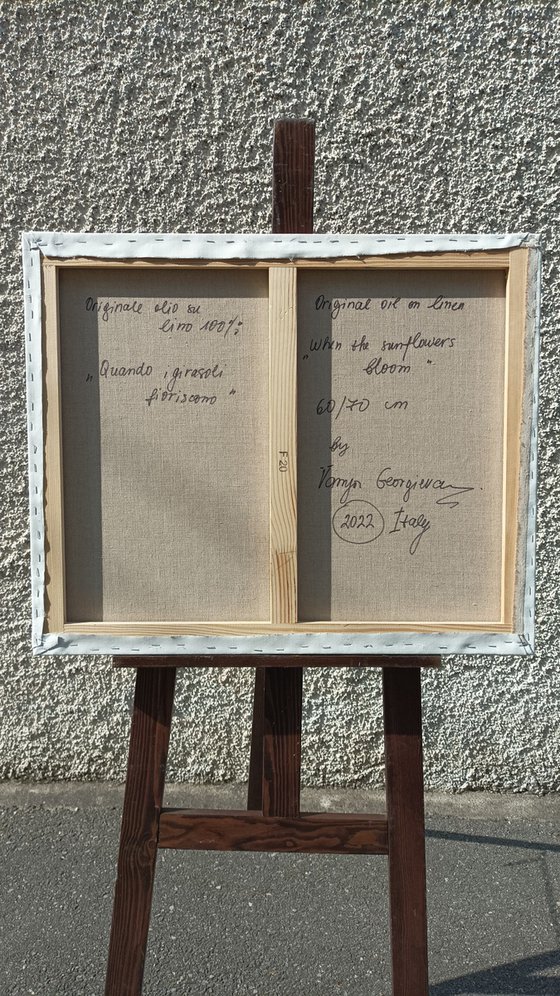 Originale olio su
lino 100%
„Quando i girasoli
fioriscono"
F 20
Original oil on linen
„When the sunflowers
bloom"
60/70 cm
by
Georgieva
2022 Italy